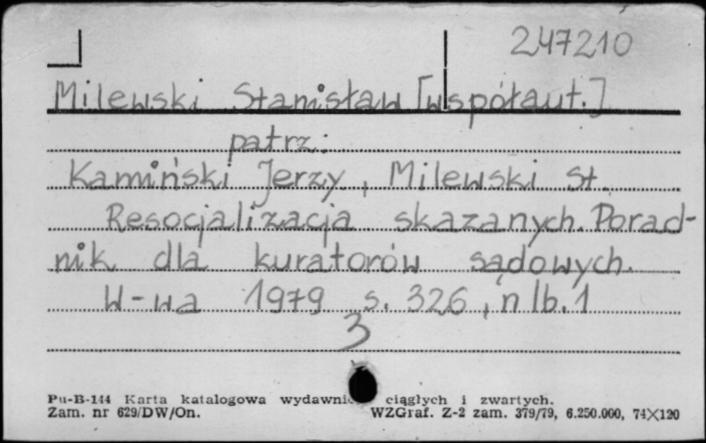 247210
Milewski Stanisław [współaut.]
patrz:
Kamiński Jerzy, Milewski St.
Resocjalizacja skazanych. Porad-
nik dla kuratorów sądowych.
W-wa 1979 s. 326, nlb. 1
3
Pu-B-144 Karta katalogowa wydawnic ciągłych i zwartych.
Zam. nr 629/DW/On. WZGraf. Z-2 zam. 379/79, 6.250.000, 74×120